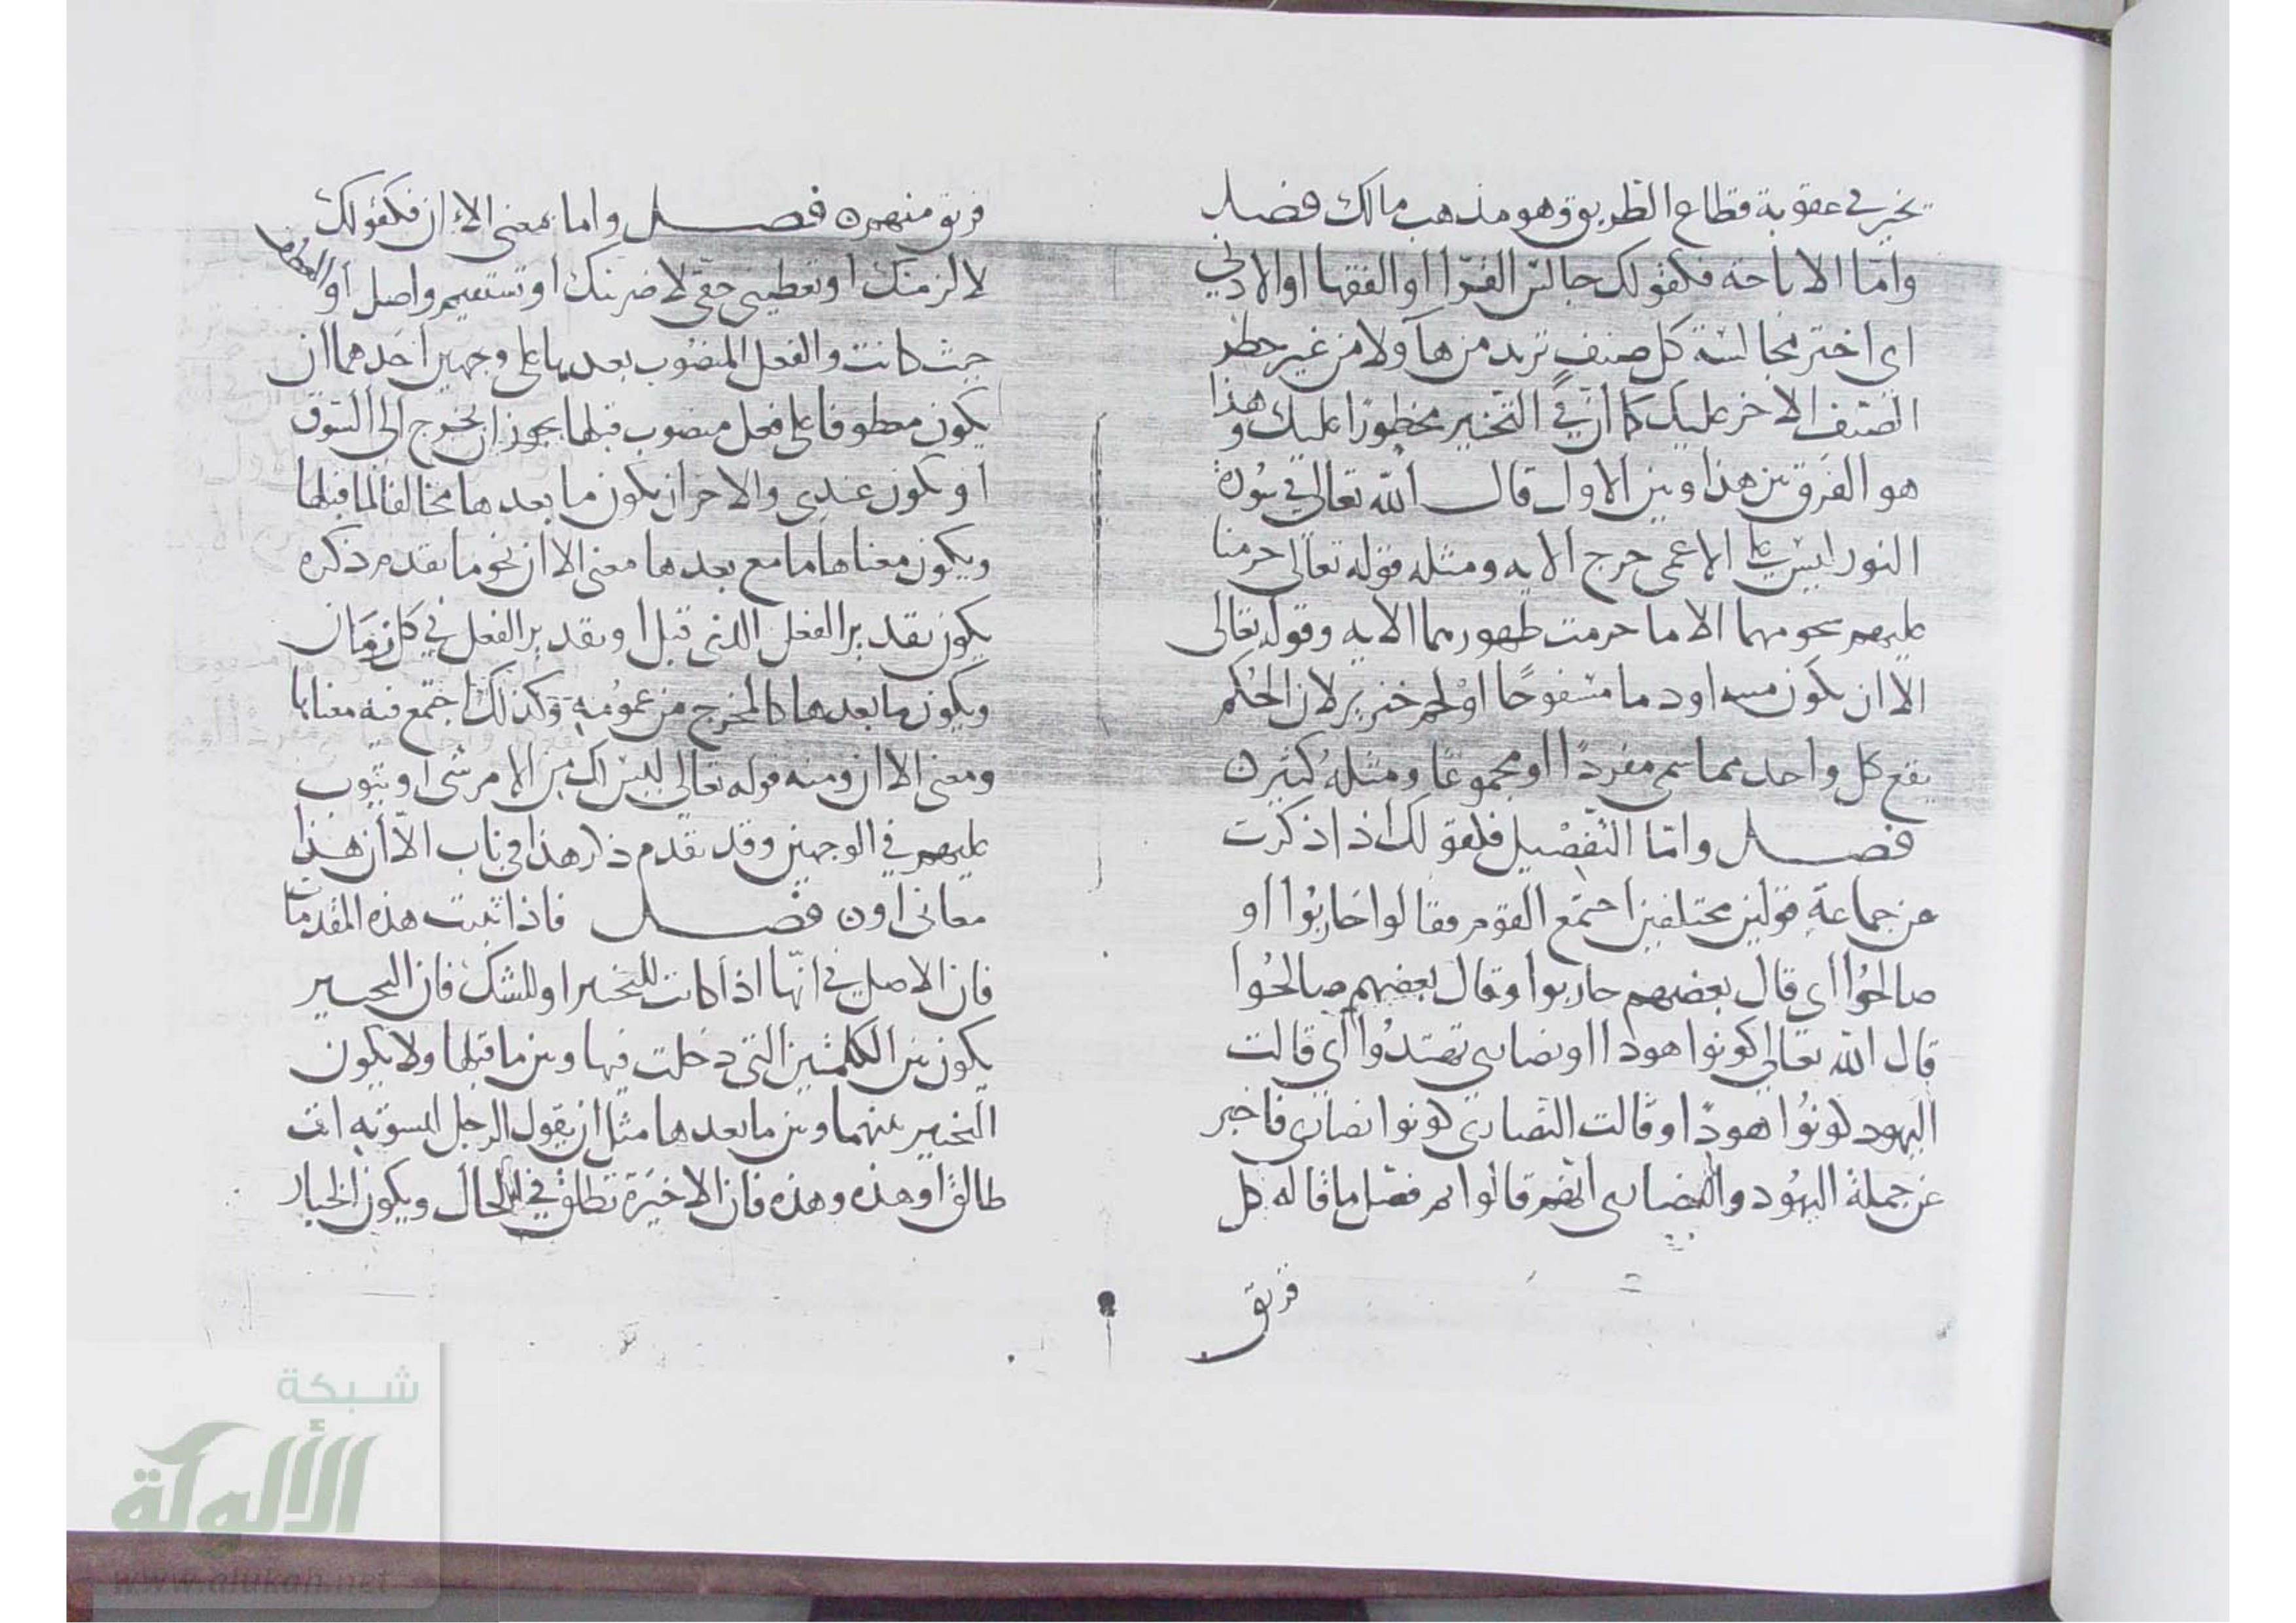 يخير في عقوبة قطاع الطريق وهو مذهب مالك فصل
وامّا الاباحة فكقولك جالس القرّاا او الفقها او
اي اختر مجالسة كل صنف تريد من هاولا من غير حظر
الصنف الاخر عليك كما ان في التخيير محظورًا عليك وهذا
هو الفرق بين هذا وبين الاول قال الله تعالى في سُورة
النور ليس على الاعمى حرج الايه ومثله قوله تعالى حرمنا
عليهم شحومهما الا ما حرمت ظهورهما الايه وقوله تعالى
الا ان يكون ميته او دما مسفوحًا اوْ لحم خنزير لان الحُكم
يقع كل واحد مما سمى مفردًا او مجموعًا ومثلهُ كثيره
فصل وامّا التفصْيل فكقولك اذا ذكرت
عن جماعةٍ قولين مختلفين اجتمع القوم فقالوا حَاربُوا او
صالحُوا اي قال بعضهم حاربوا وقال بعضهم صالحُوا
قال الله تعالى كونوا هودا او نصارى تهتدُوا اي قالت
اليهود كونُوا هودًا وقالت النّصارى كونوا نصارى فاخبر
عن جملة اليهُود والنصارى انهم قالوا ثم فصّل ما قاله كل
فريق
فريق منهم ه فصل واما بمعنى الا ان فكقولك
لالزمنّك او تعطيني حقّي لاضربنك او تستقيم واصل او العطف
حيث كانت والفعل المنصُوب بعدها على وجهين احَدهما ان
يكون معطوفا على فعل منصوب قبلها يجوز ان يخرج الى السّوق
او يكون عندي والاخر ان يكون ما بعدها مخالفا لما قبلها
ويكون معناها ما مع بعدها معنى الا ان نحو ما تقدم ذكره
يكون تقدير الفعل الذي قبل او تقدير الفعل في كل زمَان
ويكون ما بعدها كالمخرج من عمُومهِ وكذلك اجتمع فيه معناها
ومعنى الا ان ومنه قوله تعالى ليس لك من الامر شى او يتوب
عليهم في الوجهين وقد تقدم ذكر هذا في باب الاّ ان هذا
معاني او ه فصل فاذا ثبتت هذه المقدمات
فان الاصل في انّها اذا كانت للتخيير او للشك فان التخيير
يكون بين الكلمتين التي دخلت فيها وبين ما قبلها ولا يكون
التخيير بينهما وبين ما بعدها مثل ان يقول الرجل لنسوته انت
طالق او هذه وهذه فان الاخيرَة تطلق في الحال ويكون الخيار
شبكة
الألوكة
www.alukah.net